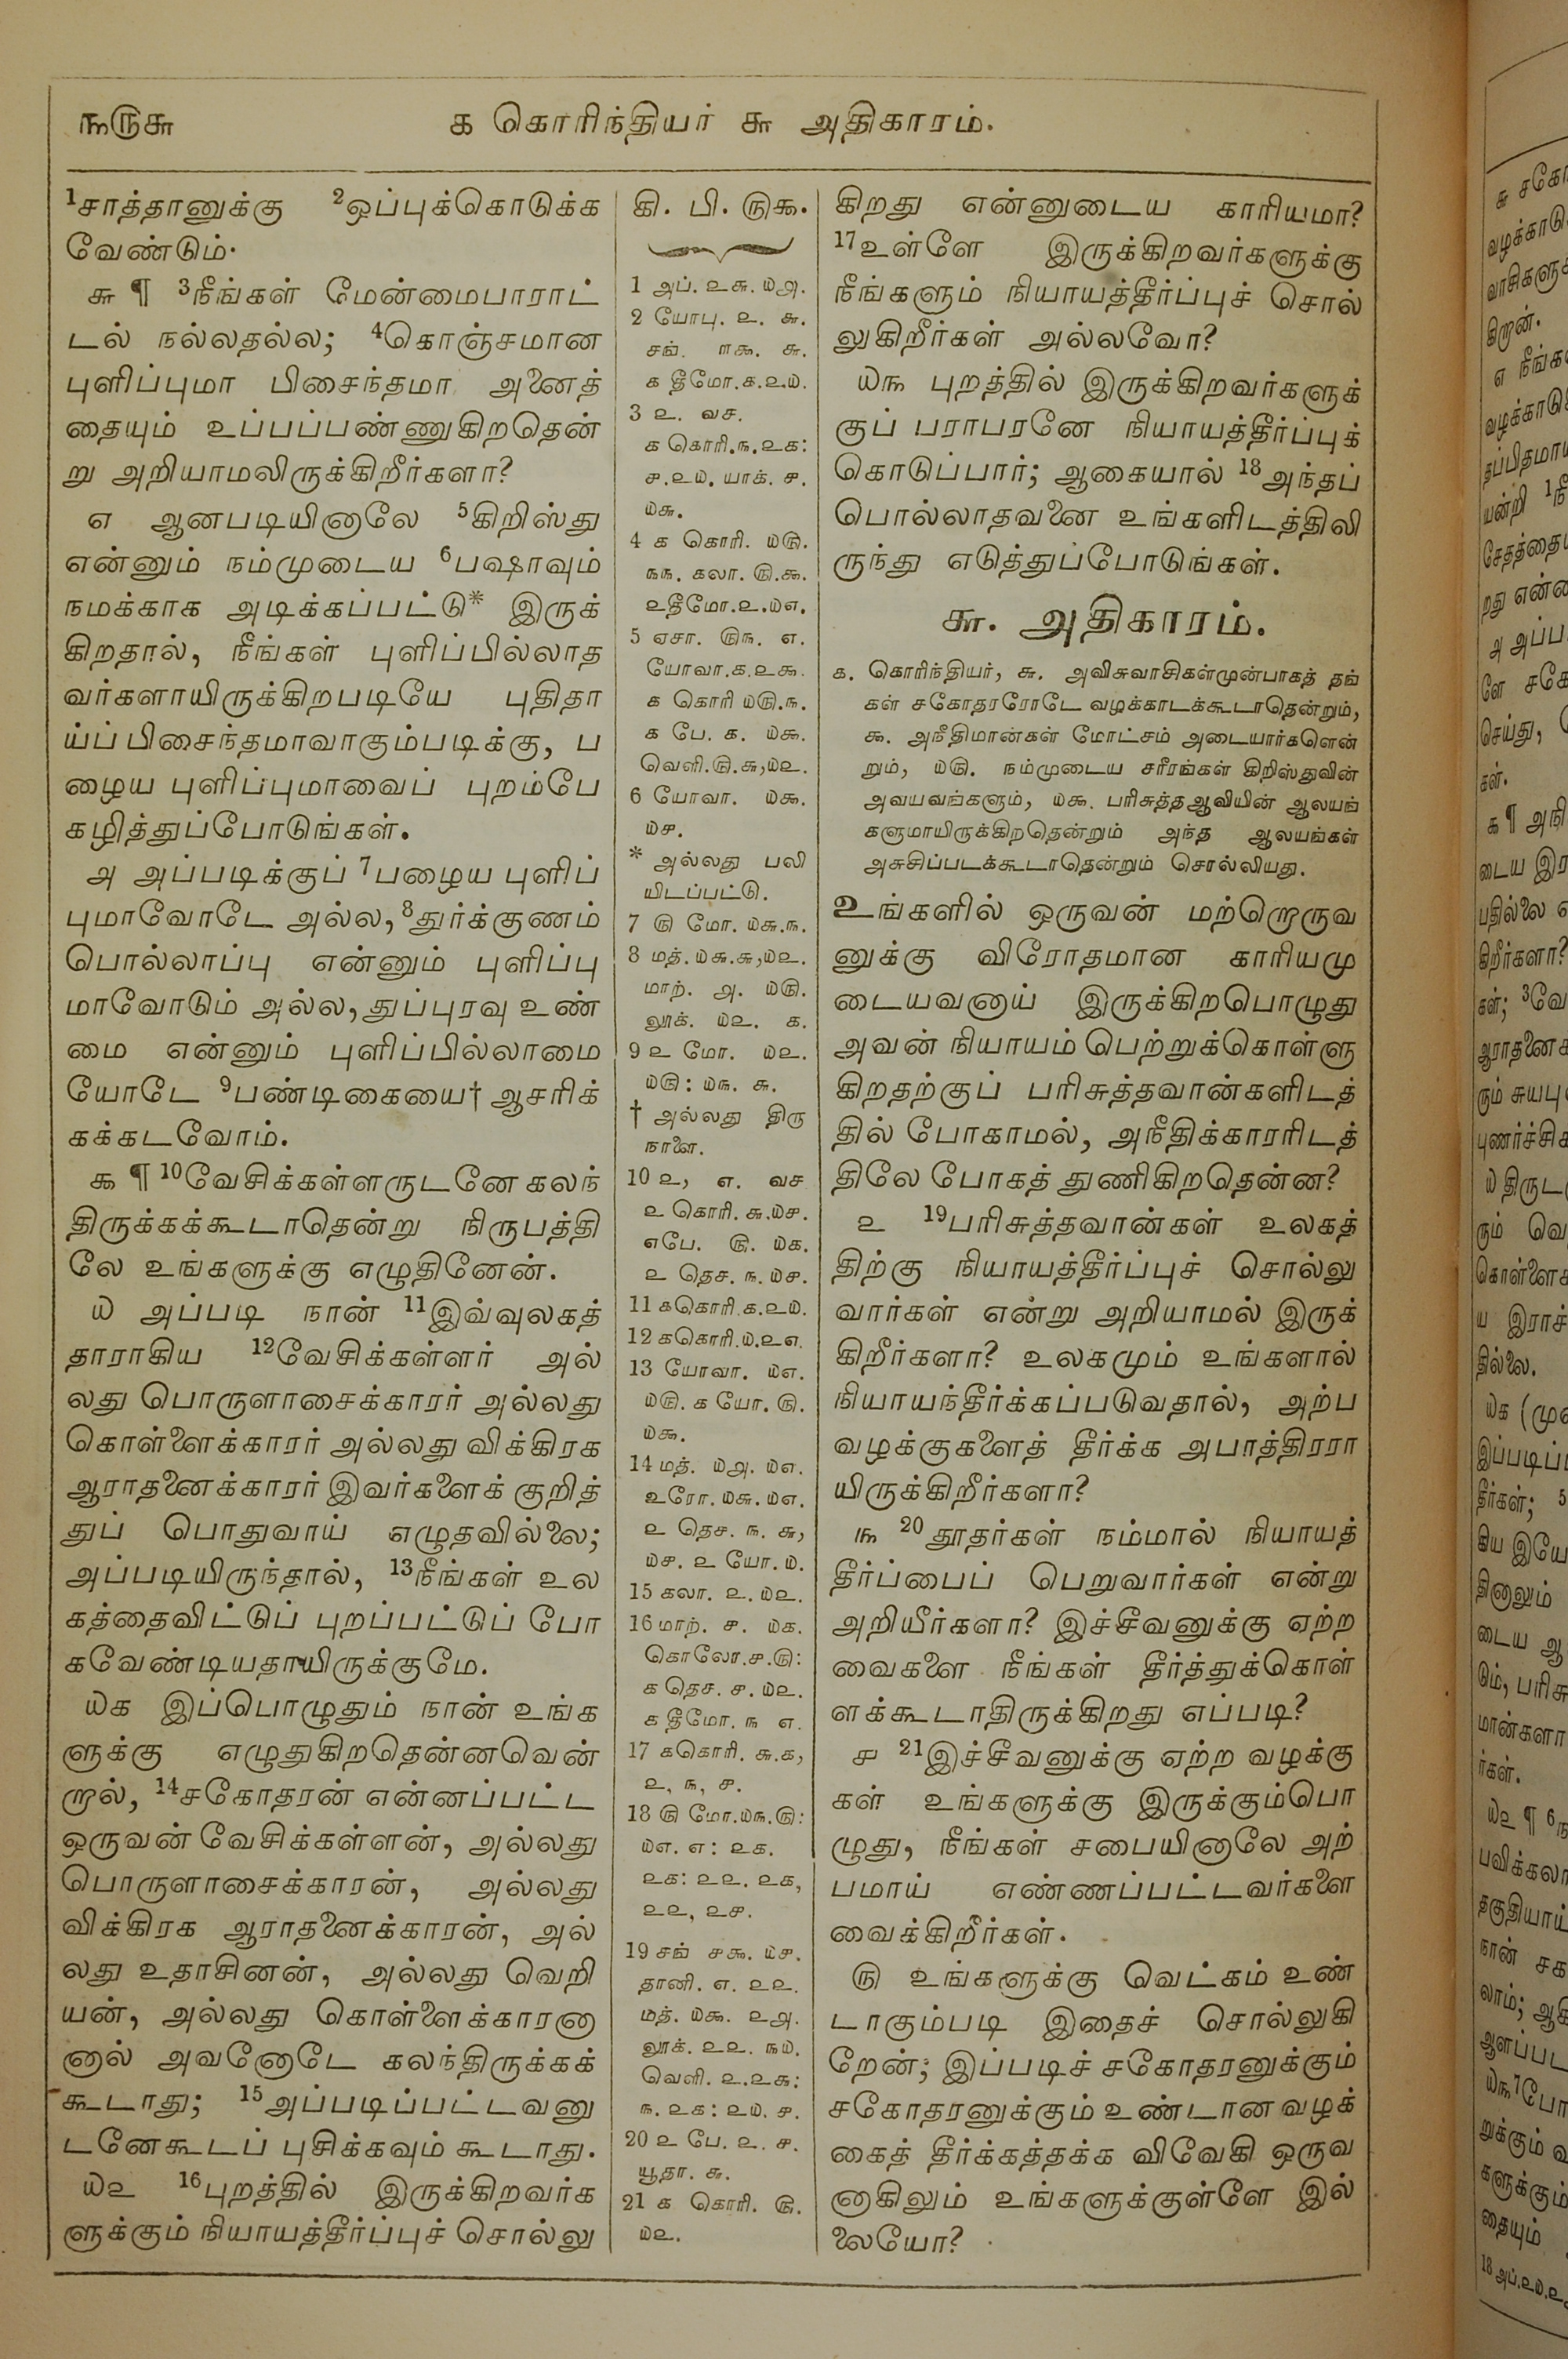 ௩௫௬
௧ கொரிந்தியர் ௬ அதிகாரம்.
1சாத்தானுக்கு 2ஒப்புக்கொடுக்க
வேண்டும்.
௬ ¶ 3நீங்கள் மேன்மைபாராட்
டல் நல்லதல்ல; 4கொஞ்சமான
புளிப்புமா பிசைந்தமா அனைத்
தையும் உப்பப்பண்ணுகிறதென்
று அறியாமலிருக்கிறீர்களா?
௭ ஆனபடியினாலே 5கிறிஸ்து
என்னும் நம்முடைய 6பஷாவும்
நமக்காக அடிக்கப்பட்டு* இருக்
கிறதால், நீங்கள் புளிப்பில்லாத
வர்களாயிருக்கிறபடியே புதிதா
ய்ப் பிசைந்தமாவாகும்படிக்கு, ப
ழைய புளிப்புமாவைப் புறம்பே
கழித்துப்போடுங்கள்.
௮ அப்படிக்குப் 7பழைய புளிப்
புமாவோடே அல்ல, 8துர்க்குணம்
பொல்லாப்பு என்னும் புளிப்பு
மாவோடும் அல்ல, துப்புரவு உண்
மை என்னும் புளிப்பில்லாமை
யோடே 9பண்டிகையை† ஆசரிக்
கக்கடவோம்.
௯ ¶ 10வேசிக்கள்ளருடனே கலந்
திருக்கக்கூடாதென்று நிருபத்தி
லே உங்களுக்கு எழுதினேன்.
௰ அப்படி நான் 11இவ்வுலகத்
தாராகிய 12வேசிக்கள்ளர் அல்
லது பொருளாசைக்காரர் அல்லது
கொள்ளைக்காரர் அல்லது விக்கிரக
ஆராதனைக்காரர் இவர்களைக் குறித்
துப் பொதுவாய் எழுதவில்லை;
அப்படியிருந்தால், 13நீங்கள் உல
கத்தைவிட்டுப் புறப்பட்டுப் போ
கவேண்டியதாயிருக்குமே.
௰௧ இப்பொழுதும் நான் உங்க
ளுக்கு எழுதுகிறதென்னவென்
றால், 14சகோதரன் என்னப்பட்ட
ஒருவன் வேசிக்கள்ளன், அல்லது
பொருளாசைக்காரன், அல்லது
விக்கிரக ஆராதனைக்காரன், அல்
லது உதாசினன், அல்லது வெறி
யன், அல்லது கொள்ளைக்காரனா
னால் அவனோடே கலந்திருக்கக்
கூடாது; 15அப்படிப்பட்டவனு
டனேகூடப் புசிக்கவும் கூடாது.
௰௨ 16புறத்தில் இருக்கிறவர்க
ளுக்கும் நியாயத்தீர்ப்புச் சொல்லு
கி. பி. ௫௯.
1 அப். ௨௬. ௰௮.
2 யோபு. ௨. ௬.
சங். ௱௯. ௬.
௧ தீமோ.௧.௨௰.
3 ௨. வச.
௧ கொரி.௩.௨௧:
௪.௨௰. யாக். ௪.
௰௬.
4 ௧ கொரி. ௰௫.
௩௩. கலா. ௫.௯.
௨தீமோ.௨.௰௭.
5 ஏசா. ௫௩. ௭.
யோவா.௧.௨௯.
௧ கொரி ௰௫.௩.
௧ பே. ௧. ௰௯.
வெளி.௫.௬,௰௨.
6 யோவா. ௰௯.
௰௪.
* அல்லது பலி
யிடப்பட்டு.
7 ௫ மோ. ௰௬.௩.
8 மத். ௰௬.௬,௰௨.
மாற். ௮. ௰௫.
லூக். ௰௨. ௧.
9 ௨ மோ. ௰௨.
௰௫: ௰௩. ௬.
† அல்லது திரு
நாளை.
10 ௨, ௭. வச
௨ கொரி. ௬.௰௪.
எபே. ௫. ௰௧.
௨ தெச. ௩. ௰௪.
11 ௧கொரி.௧.௨௰.
12 ௧கொரி.௰.௨௭.
13 யோவா. ௰௭.
௰௫. ௧ யோ. ௫.
௰௯.
14 மத். ௰௮. ௰௭.
உரோ. ௰௬. ௰௭.
௨ தெச. ௩. ௬,
௰௪. ௨ யோ. ௰.
15 கலா. ௨. ௰௨.
16 மாற். ௪. ௰௧.
கொலோ.௪.௫:
௧ தெச. ௪. ௰௨.
௧ தீமோ. ௩ ௭.
17 ௧கொரி. ௬.௧,
௨, ௩, ௪.
18 ௫ மோ.௰௩.௫:
௰௭. ௭: ௨௧.
௨௧: ௨௨. ௨௧,
௨௨, ௨௪.
19 சங் ௪௯. ௰௪.
தானி. ௭. ௨௨.
மத். ௰௯. ௨௮.
லூக். ௨௨. ௩௰.
வெளி. ௨.௨௬:
௩. ௨௧: ௨௰. ௪.
20 ௨ பே. ௨. ௪.
யூதா. ௬.
21 ௧ கொரி. ௫.
௰௨.
கிறது என்னுடைய காரியமா?
17உள்ளே இருக்கிறவர்களுக்கு
நீங்களும் நியாயத்தீர்ப்புச் சொல்
லுகிறீர்கள் அல்லவோ?
௰௩ புறத்தில் இருக்கிறவர்களுக்
குப் பராபரனே நியாயத்தீர்ப்புக்
கொடுப்பார்; ஆகையால் 18அந்தப்
பொல்லாதவனை உங்களிடத்திலி
ருந்து எடுத்துப்போடுங்கள்.
௬. அதிகாரம்.
௧. கொரிந்தியர், ௬. அவிசுவாசிகள்முன்பாகத் தங்
கள் சகோதரரோடே வழக்காடக்கூடாதென்றும்,
௯. அநீதிமான்கள் மோட்சம் அடையார்களென்
றும், ௰௫. நம்முடைய சரீரங்கள் கிறிஸ்துவின்
அவயவங்களும், ௰௯. பரிசுத்தஆவியின் ஆலயங்
களுமாயிருக்கிறதென்றும் அந்த ஆலயங்கள்
அசுசிப்படக்கூடாதென்றும் சொல்லியது.
உங்களில் ஒருவன் மற்றொருவ
னுக்கு விரோதமான காரியமு
டையவனாய் இருக்கிறபொழுது
அவன் நியாயம் பெற்றுக்கொள்ளு
கிறதற்குப் பரிசுத்தவான்களிடத்
தில் போகாமல், அநீதிக்காரரிடத்
திலே போகத் துணிகிறதென்ன?
௨ 19பரிசுத்தவான்கள் உலகத்
திற்கு நியாயத்தீர்ப்புச் சொல்லு
வார்கள் என்று அறியாமல் இருக்
கிறீர்களா? உலகமும் உங்களால்
நியாயந்தீர்க்கப்படுவதால், அற்ப
வழக்குகளைத் தீர்க்க அபாத்திரரா
யிருக்கிறீர்களா?
௩ 20தூதர்கள் நம்மால் நியாயத்
தீர்ப்பைப் பெறுவார்கள் என்று
அறியீர்களா? இச்சீவனுக்கு ஏற்ற
வைகளை நீங்கள் தீர்த்துக்கொள்
ளக்கூடாதிருக்கிறது எப்படி?
௪ 21இச்சீவனுக்கு ஏற்ற வழக்கு
கள் உங்களுக்கு இருக்கும்பொ
ழுது, நீங்கள் சபையினாலே அற்
பமாய் எண்ணப்பட்டவர்களை
வைக்கிறீர்கள்.
௫ உங்களுக்கு வெட்கம் உண்
டாகும்படி இதைச் சொல்லுகி
றேன்; இப்படிச் சகோதரனுக்கும்
சகோதரனுக்கும் உண்டான வழக்
கைத் தீர்க்கத்தக்க விவேகி ஒருவ
னாகிலும் உங்களுக்குள்ளே இல்
லையோ?